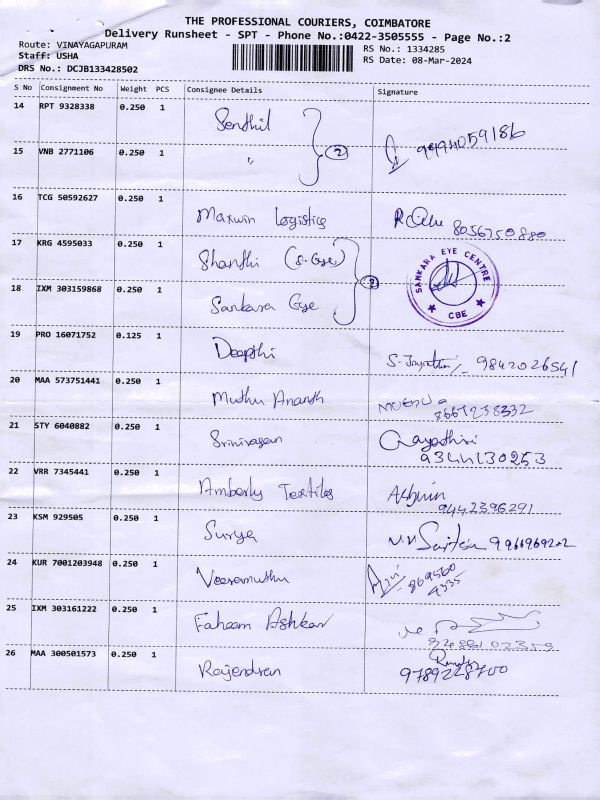 THE PROFESSIONAL COURIERS, COIMBATORE
Delivery Runsheet - SPT - Phone No.:0422-3505555 - Page No.:2
Route: VINAYAGAPURAM
Staff: USHA
DRS No.: DCJB133428502
RS No.: 1334285
RS Date: 08-Mar-2024
S No Consignment No Weight PCS Consignee Details Signature
14 RPT 9328338 0.250 1 Senthil
15 VNB 2771106 0.250 1 " 2 9994059186
16 TCG 50592627 0.250 1 Maxwin Logistics 8056750880
17 KRG 4595033 0.250 1 Shanthi (S-Eye)
18 IXM 303159868 0.250 1 Sankara Eye 2 SANKARA EYE CENTRE CBE
19 PRO 16071752 0.125 1 Deepthi 9842026541
20 MAA 573751441 0.250 1 Muthu Ananth 8667238332
21 STY 6040882 0.250 1 Srinivasan Gayathiri 9344130253
22 VRR 7345441 0.250 1 Amberly Textiles Ashwin 9442396291
23 KSM 929505 0.250 1 Surya
24 KUR 7001203948 0.250 1 Veeramuthu 869560 4335
25 IXM 303161222 0.250 1 Faheem Ashkar
26 MAA 300501573 0.250 1 Rajendran 9789228700